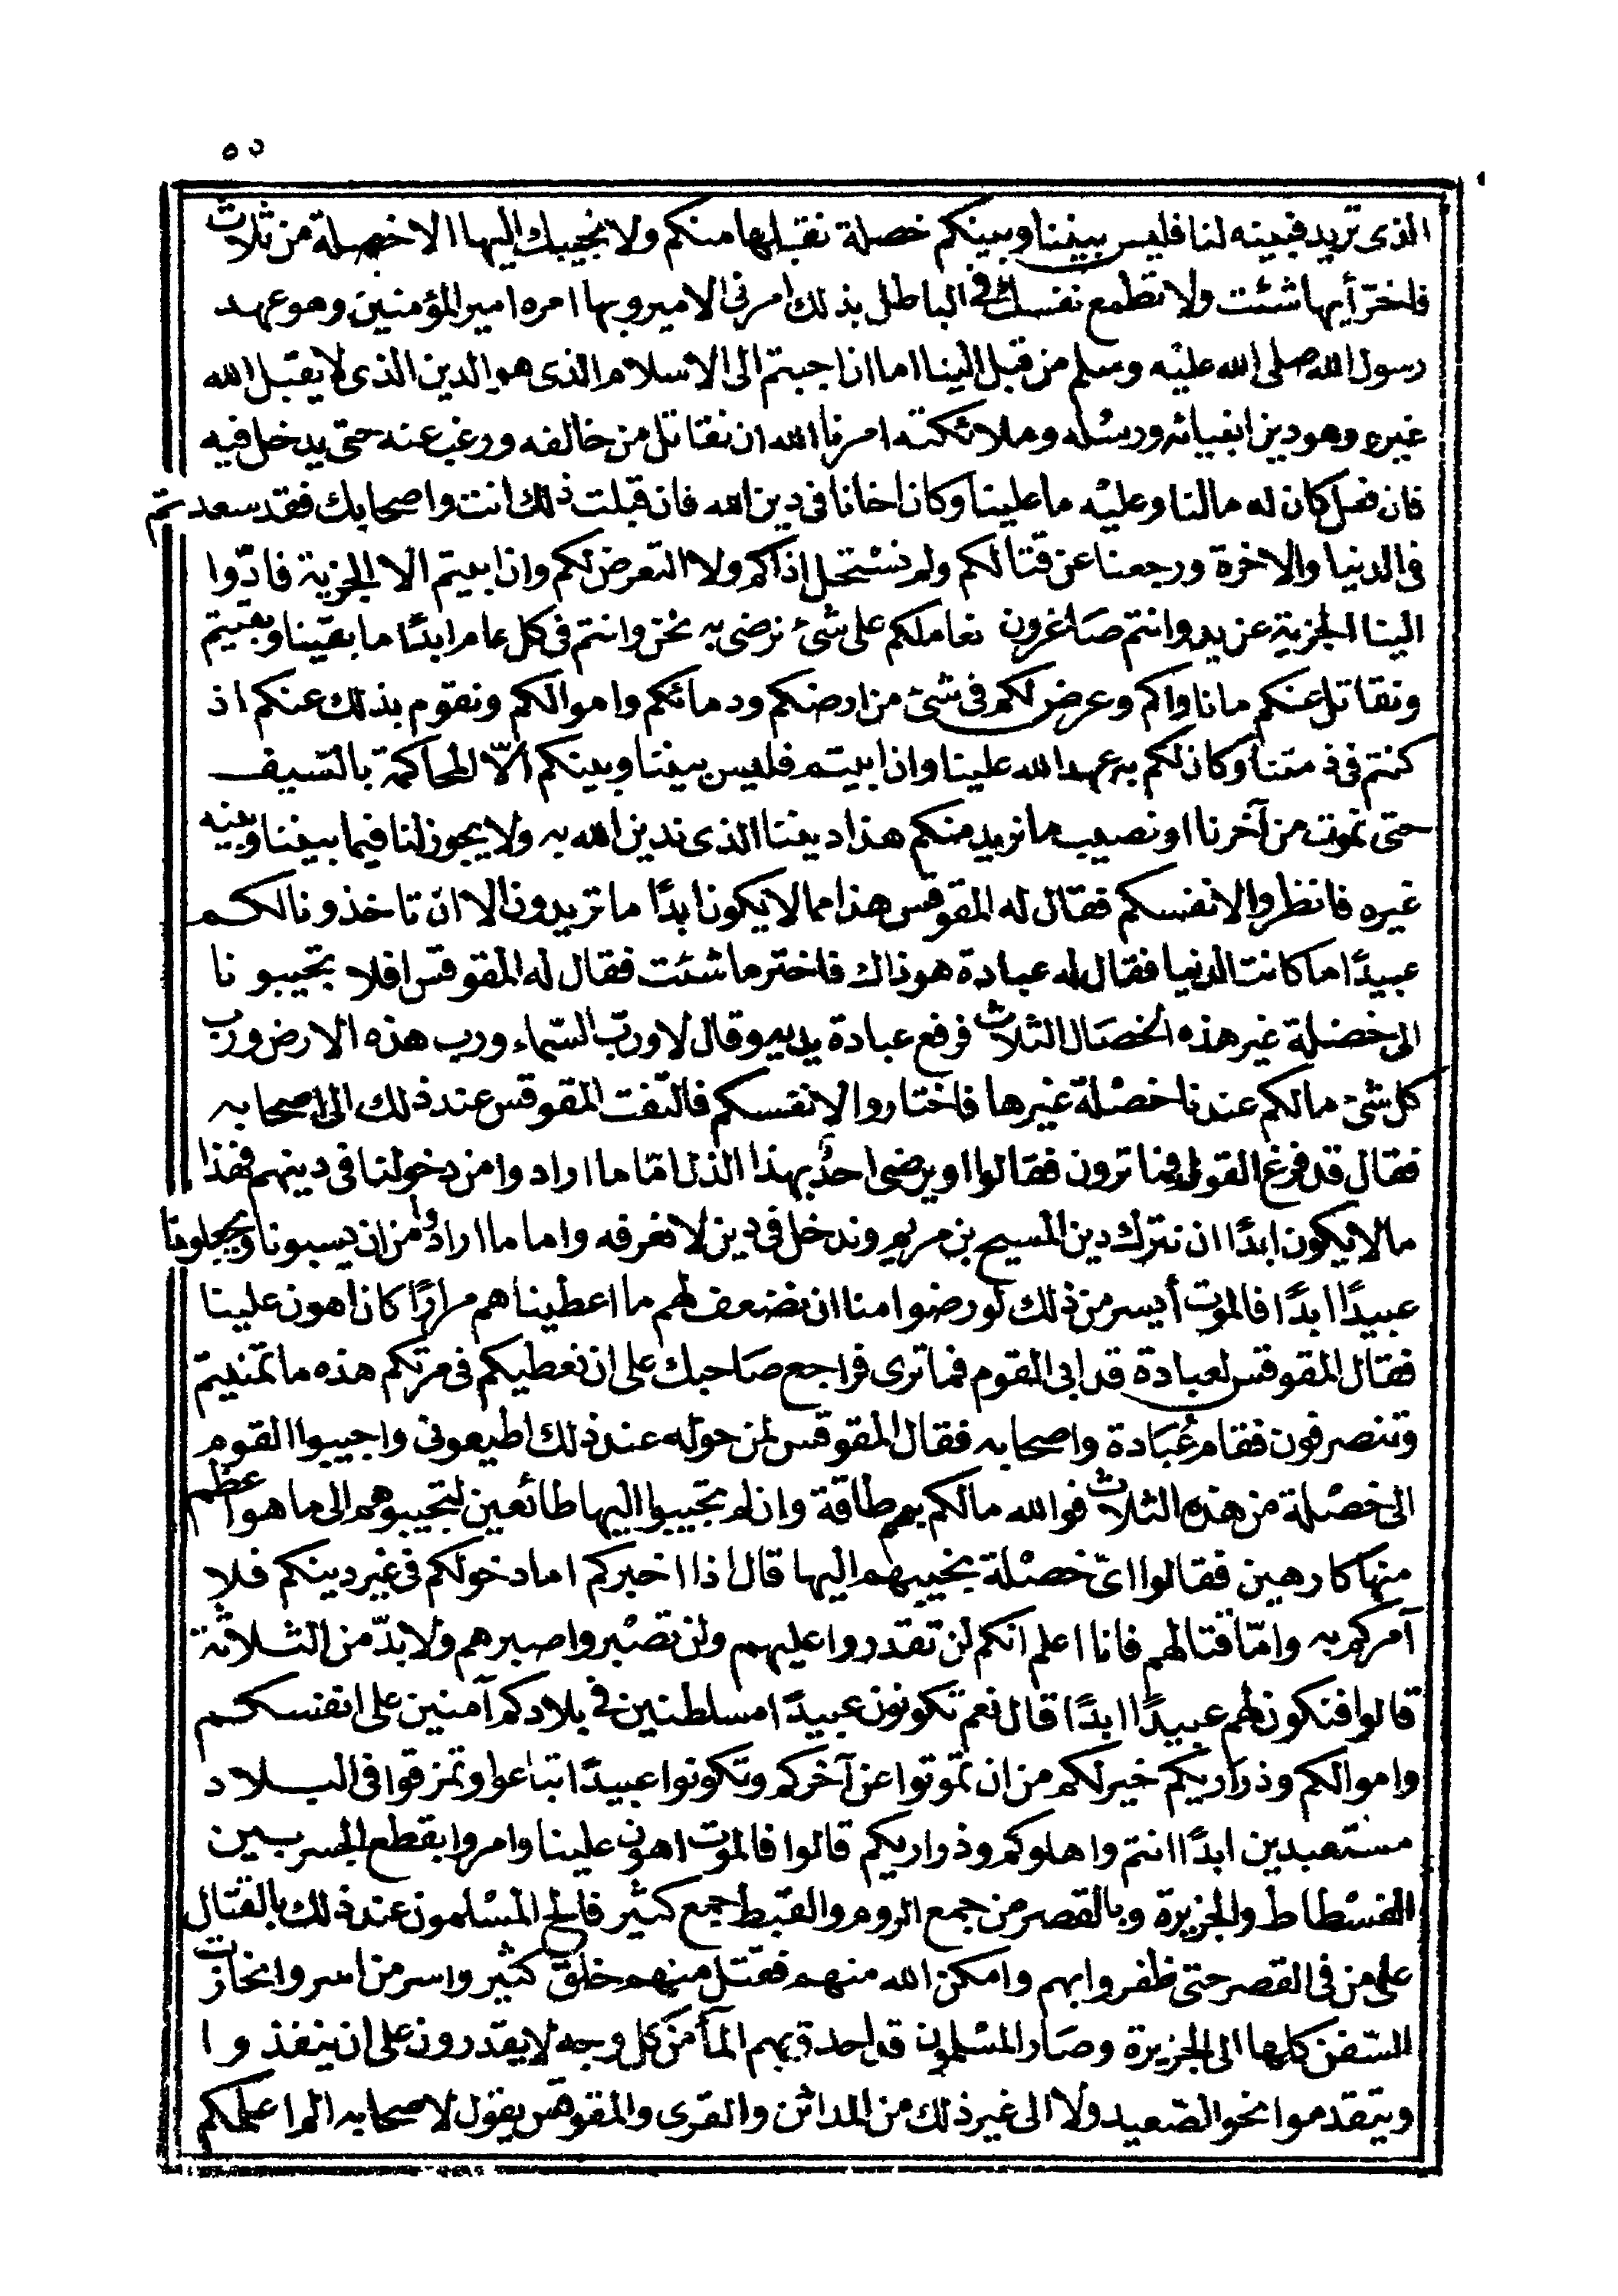 ٥٥
الذى تريد فبينه لنا فليس بيننا وبينكم خصلة نقبلها منكم ولا نجيبك اليها الا خصلة من ثلاث
فاختر أيها شئت ولا تطمع نفسك فى الباطل بذلك امرنى الامير وبها امره امير المؤمنين وهو عهد
رسول الله صلى الله عليه وسلم من قبل الينا اما ان اجبتم الى الاسلام الذى هو الدين الذى لا يقبل الله
غيره وهو دين انبيائه ورسله وملائكته امرنا الله ان نقاتل من خالفه ورغب عنه حتى يدخل فيه
فان فعل كان له مالنا وعليه ما علينا وكان اخانا فى دين الله فان قبلت ذلك انت واصحابك فقد سعدتم
فى الدنيا والاخرة ورجعنا عن قتالكم ولم نستحل اذاكم ولا التعرض لكم وان ابيتم الا الجزية فادّوا
الينا الجزية عن يد وانتم صاغرون نعاملكم على شئ نرضى به نحن وانتم فى كل عام ابدًا ما بقينا وبقيتم
ونقاتل عنكم من ناواكم وعرض لكم فى شئ من ارضكم ودمائكم واموالكم ونقوم بذلك عنكم اذ
كنتم فى ذمتنا وكان لكم به عهد الله علينا وان ابيتم فليس بيننا وبينكم الّا المحاكمة بالسيف
حتى نموت من آخرنا او نصيب ما نريد منكم هذا ديننا الذى ندين الله به ولا يجوز لنا فيما بيننا وبينه
غيره فانظروا لانفسكم فقال له المقوقس هذا مما لا يكون ابدًا ما تريدون الا ان تاخذونا لكم
عبيدًا ما كانت الدنيا فقال له عبادة هو ذاك فاختر ما شئت فقال له المقوقس افلا تجيبونا
الى خصلة غير هذه الخصال الثلاث فرفع عبادة يديه وقال لا ورب السماء ورب هذه الارض ورب
كل شئ مالكم عندنا خصلة غيرها فاختاروا لانفسكم فالتفت المقوقس عند ذلك الى اصحابه
فقال قد فرغ القول فما ترون فقالوا او يرضى احد بهذا الذل امّا ما اراد وا من دخولنا فى دينهم فهذا
مالا يكون ابدًا ان نترك دين المسيح بن مريم وندخل فى دين لا نعرفه واما ما ارادوا من ان يسبونا ويجعلونا
عبيدًا ابدًا فالموت أيسر من ذلك لو رضوا منا ان نضعف لهم ما اعطيناهم مرارًا كان اهون علينا
فقال المقوقس لعبادة قد ابى القوم فما ترى فراجع صاحبك على ان نعطيكم فى مرتكم هذه ما تمنيتم
وتنصرفون فقام عُبَادة واصحابه فقال المقوقس لمن حوله عند ذلك اطيعونى واجيبوا القوم
الى خصلة من هذه الثلاث فوالله مالكم بهم طاقة وان لم تجيبوا اليها طائعين لتجيبوهم الى ما هو اعظم
منها كارهين فقالوا اىّ خصلة نجيبهم اليها قال اذا اخبركم اما دخولكم فى غير دينكم فلا
آمركم به وامّا قتالهم فانا اعلم انكم لن تقدروا عليهم ولن تصبروا صبرهم ولا بدّ من الثلاثة
قالوا فنكون لهم عبيدًا ابدًا قال نعم تكونون عبيدًا مسلطنين فى بلادكم آمنين على انفسكم
واموالكم وذراريكم خير لكم من ان تموتوا عن آخركم وتكونوا عبيدًا تباعوا وتمزقوا فى البلاد
مستعبدين ابدًا انتم واهلوكم وذراريكم قالوا فالموت اهون علينا وامروا بقطع الجسر بين
الفسطاط والجزيرة وبالقصر من جمع الروم والقبط جمع كثير فالح المسلمون عند ذلك بالقتال
على من فى القصر حتى ظفروا بهم وامكن الله منهم فقتل منهم خلق كثير واسر من اسر وانحازت
السفن كلها الى الجزيرة وصار المسلمون قد احدق بهم الماء من كل وجه لا يقدرون على ان ينفذوا
ويتقدموا نحو الصعيد ولا الى غير ذلك من المدائن والقرى والمقوقس يقول لاصحابه الم اعلمكم